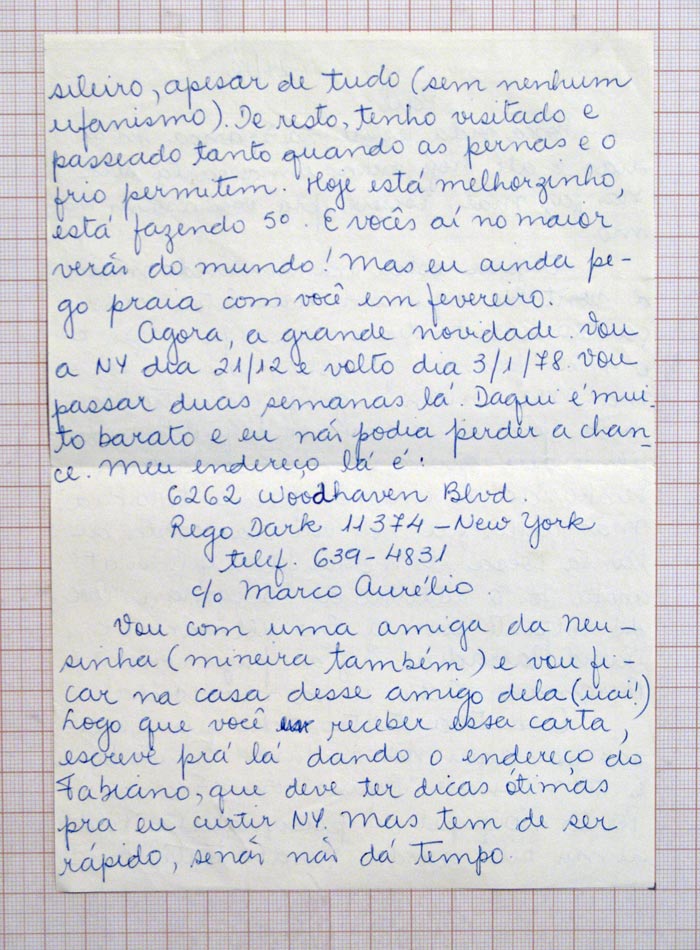 sileiro, apesar de tudo (sem nenhum
ufanismo). De resto, tenho visitado e
passeado tanto quando as pernas e o
frio permitem. Hoje está melhorzinho,
está fazendo 5º. E vocês aí no maior
verão do mundo! Mas eu ainda pe-
go praia com você em fevereiro.
Agora, a grande novidade. Vou
a NY dia 21/12 e volto dia 3/1/78. Vou
passar duas semanas lá. Daqui é mui-
to barato e eu não podia perder a chan-
ce. Meu endereço lá é:
6262 Woodhaven Blvd.
Rego Dark 11374 - New York
telef. 639-4831
c/o Marco Aurélio.
Vou com uma amiga da Neu-
sinha (mineira também) e vou fi-
car na casa desse amigo dela (uai!)
Logo que você receber essa carta,
escreve prá lá dando o endereço do
Fabiano, que deve ter dicas ótimas
pra eu curtir NY. Mas tem de ser
rápido, senão não dá tempo.